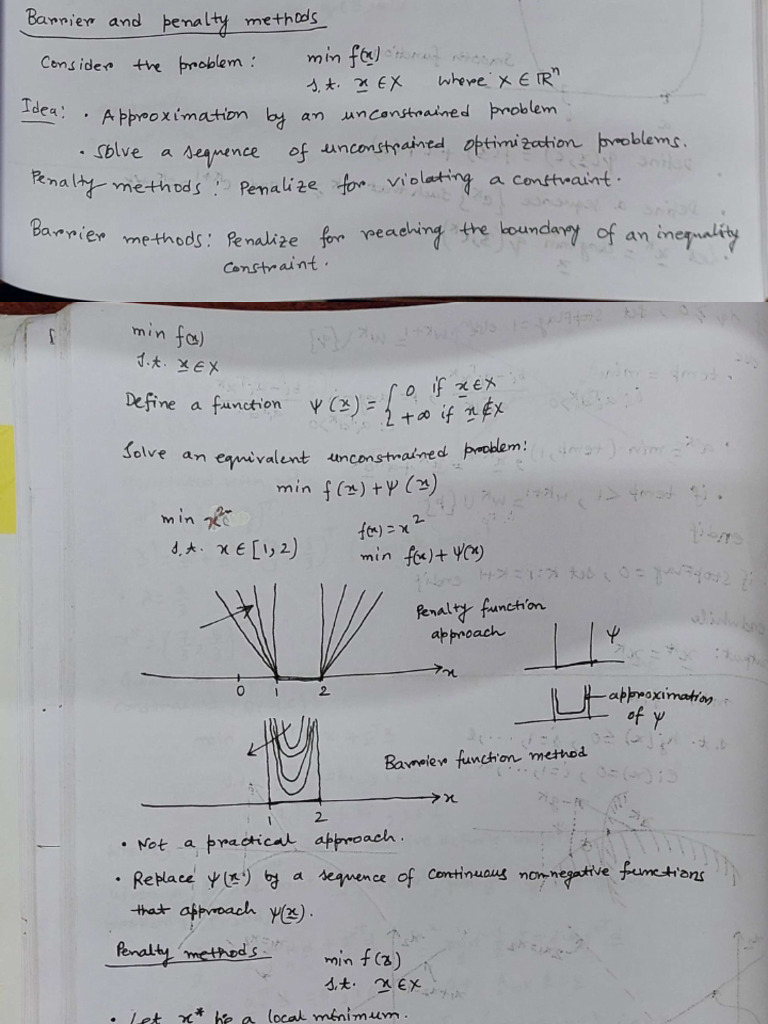 Barrier and penalty methods
Consider the problem: min f(x)
s.t. x ∈ X where X ∈ ℝⁿ
Idea: • Approximation by an unconstrained problem
• Solve a sequence of unconstrained optimization problems.
Penalty methods: Penalize for violating a constraint.
Barrier methods: Penalize for reaching the boundary of an inequality
constraint.
min f(x)
s.t. x ∈ X
Define a function ψ(x) = { 0 if x ∈ X
+∞ if x ∉ X
Solve an equivalent unconstrained problem:
min f(x) + ψ(x)
min x² f(x) = x²
s.t. x ∈ [1, 2) min f(x) + ψ(x)
Penalty function
approach
ψ
0 1 2 x
approximation
of ψ
Barrier function method
1 2 x
• Not a practical approach.
• Replace ψ(x) by a sequence of continuous non-negative functions
that approach ψ(x).
Penalty methods. min f(x)
s.t. x ∈ X
• Let x* be a local minimum.